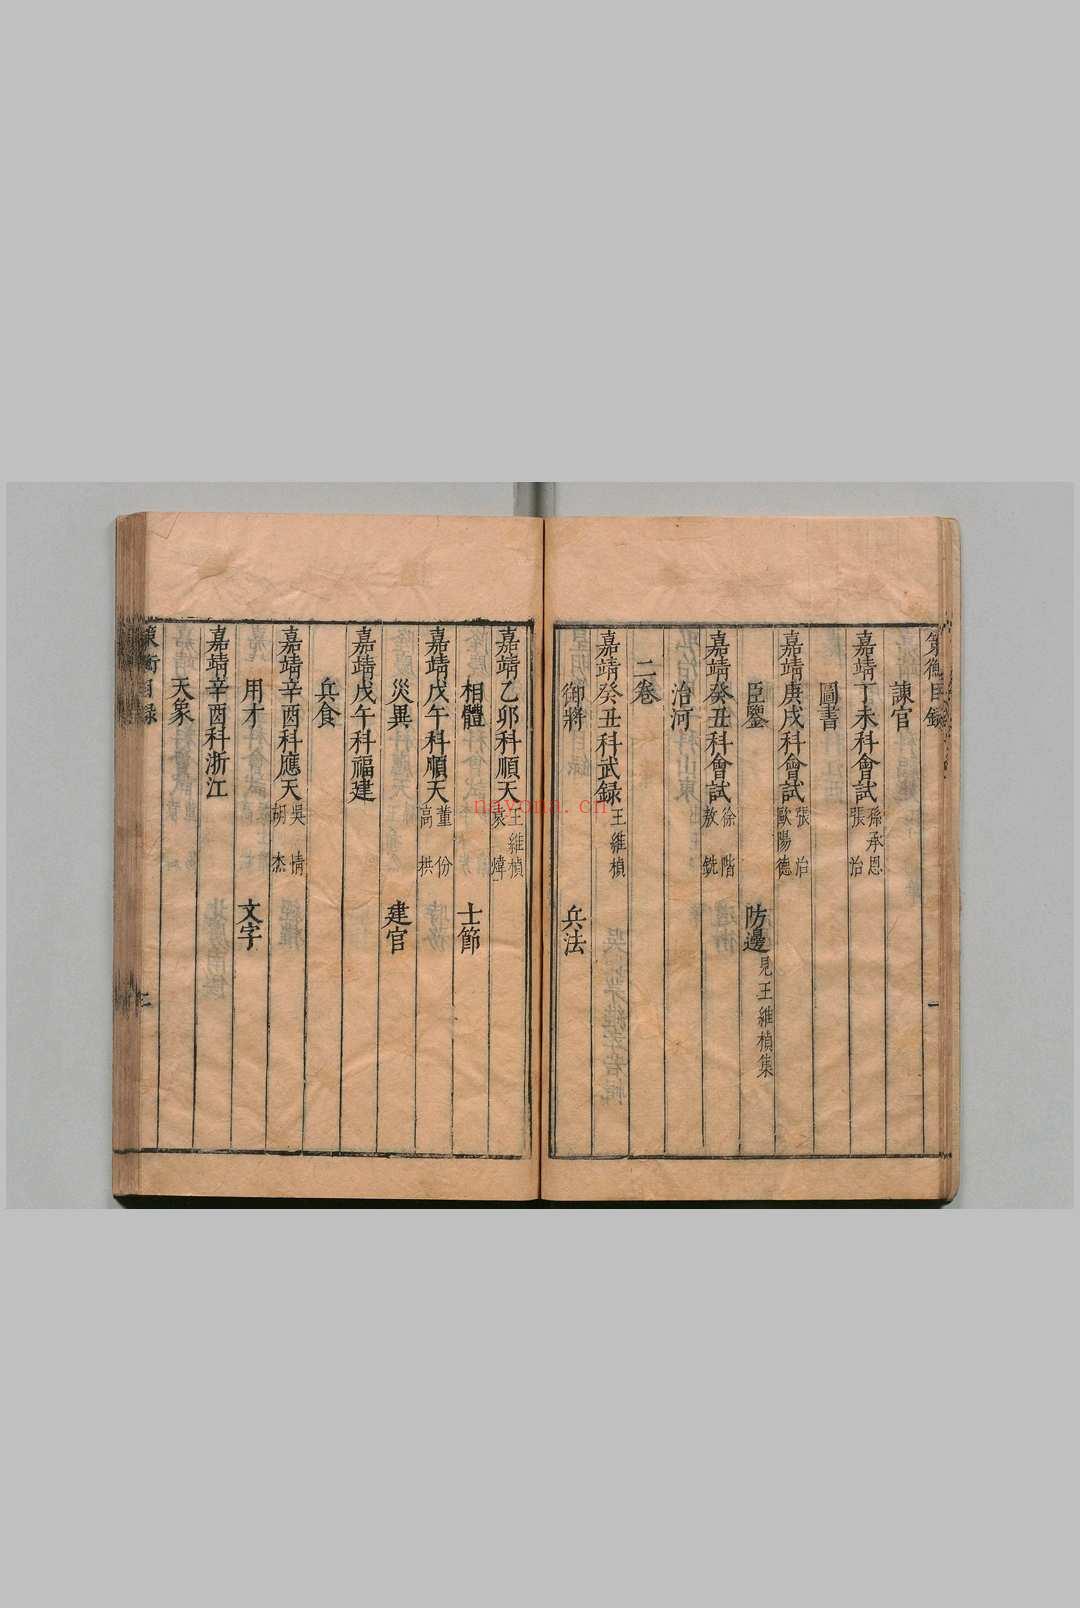 策衡目錄
一
諫官
嘉靖丁未科會試 孫承恩 張治
圖書
嘉靖庚戌科會試 張治 歐陽德
臣鑒 防邊 見王維楨集
嘉靖癸丑科會試 徐階 敖銑
治河
二卷
嘉靖癸丑科武録 王維楨
御將 兵法
嘉靖乙卯科順天 王維楨 袁煒
相體 士節
嘉靖戊午科順天 董份 高拱
災異 建官
嘉靖戊午科福建
兵食
嘉靖辛酉科應天 吳情 胡杰
用才 文字
嘉靖辛酉科浙江
天象
策衡目録
二
nayona.cn